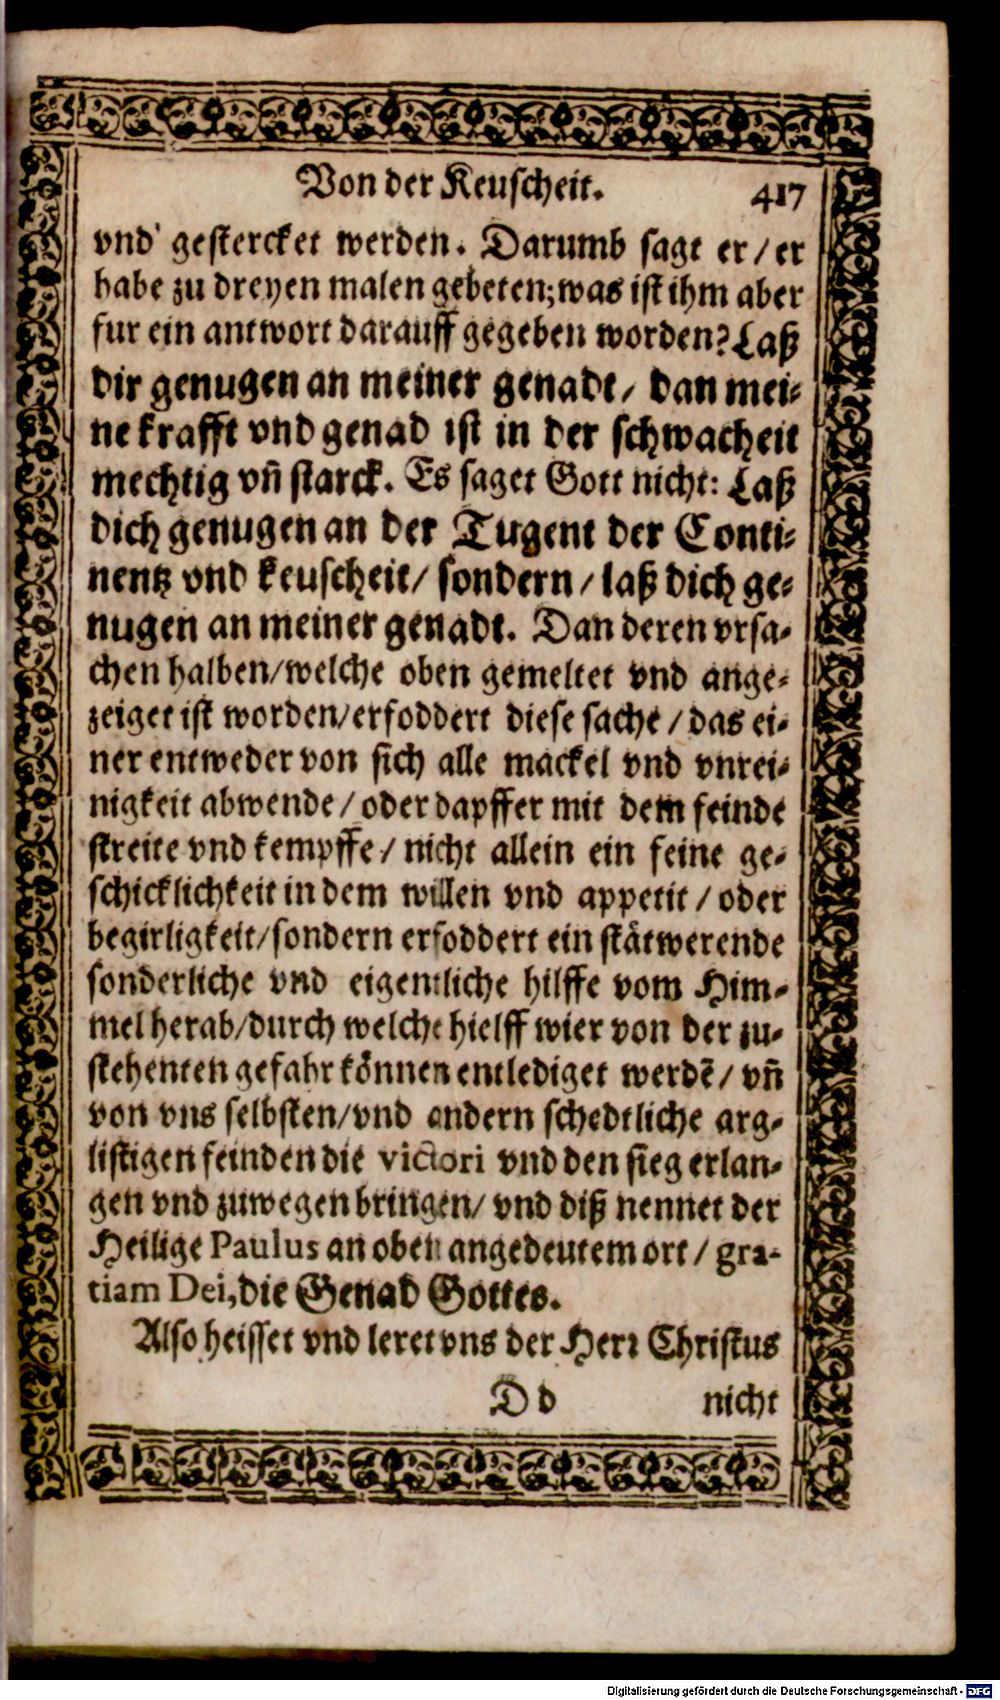 Von der Keuscheit. 417
vnd gestercket werden. Darumb sagt er/ er
habe zu dreyen malen gebeten; was ist ihm aber
fur ein antwort darauff gegeben worden? Laß
dir genugen an meiner genadt/ dan mei-
ne krafft vnd genad ist in der schwacheit
mechtig vñ starck. Es saget Gott nicht: Laß
dich genugen an der Tugent der Conti-
nentz vnd keuscheit/ sondern/ laß dich ge-
nugen an meiner genadt. Dan deren vrsa-
chen halben/welche oben gemeltet vnd ange-
zeiget ist worden/erfoddert diese sache/ das ei-
ner entweder von sich alle mackel vnd vnrei-
nigkeit abwende/ oder dapffer mit dem feinde
streite vnd kempffe/ nicht allein ein feine ge-
schicklichkeit in dem willen vnd appetit/ oder
begirligkeit/sondern erfoddert ein stätwerende
sonderliche vnd eigentliche hilffe vom Him-
mel herab/durch welche hielff wier von der zu-
stehenten gefahr können entlediget werdē/ vñ
von vns selbsten/vnd andern schedtliche arg-
listigen feinden die victori vnd den sieg erlan-
gen vnd zuwegen bringen/ vnd diß nennet der
Heilige Paulus an oben angedeutem ort/ gra-
tiam Dei, die Genad Gottes.
Also heisset vnd leret vns der Herr Christus
D d nicht
Digitalisierung gefördert durch die Deutsche Forschungsgemeinschaft - DFG